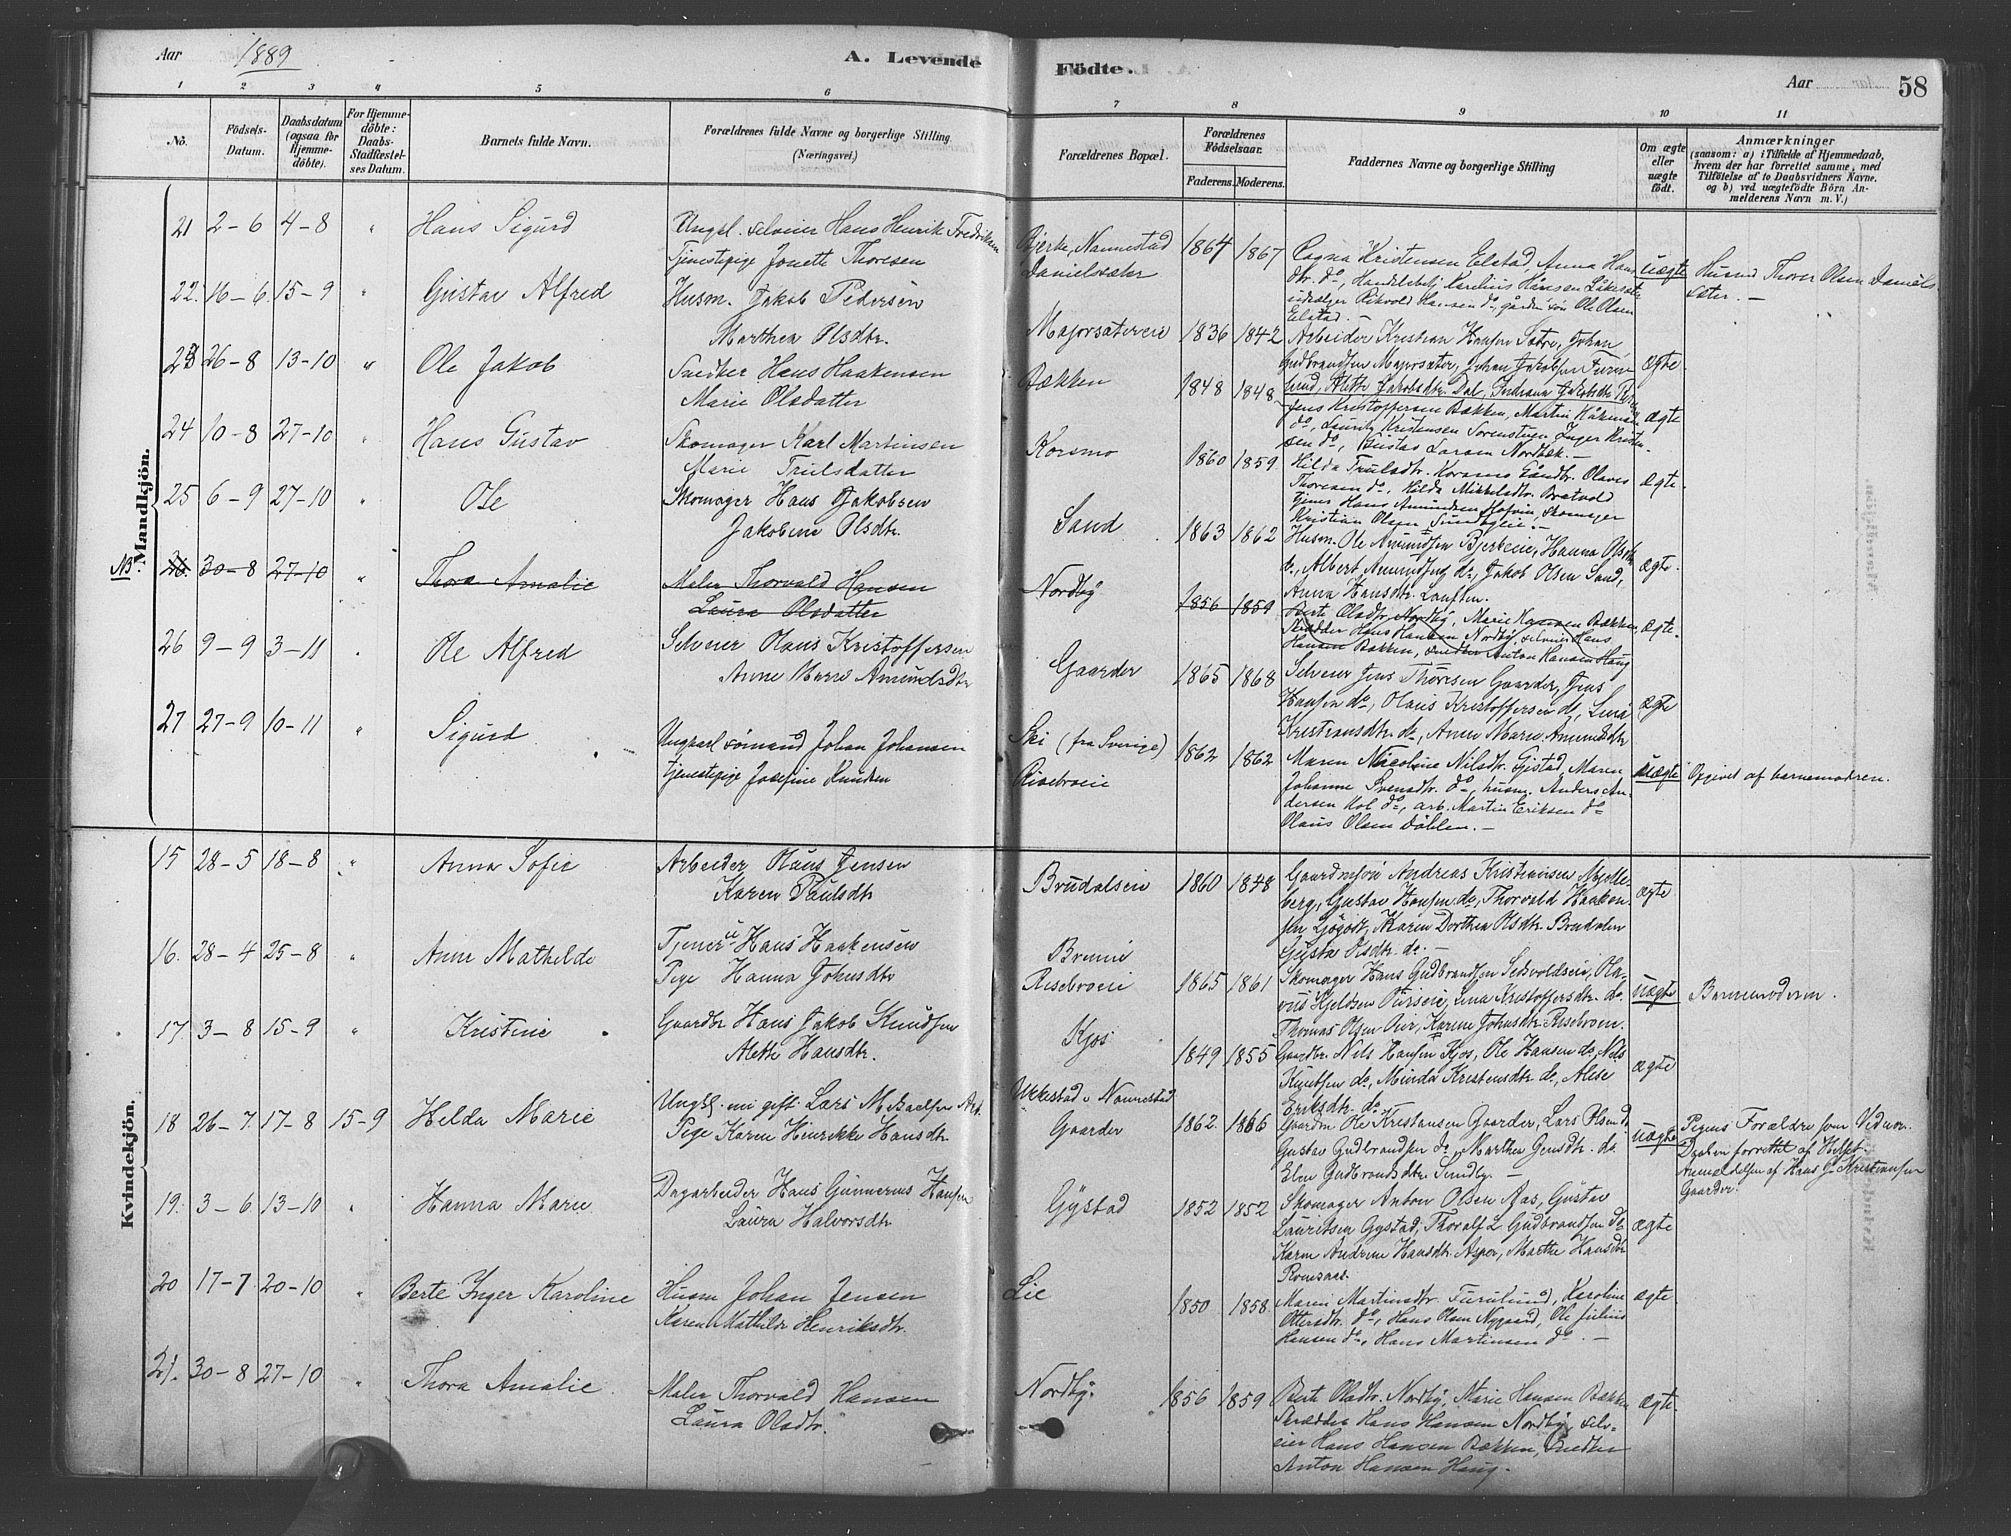 Aar 1889 A. Levende Födte. Aar 58
1 2 3 4 5 6 7 8 9 10 11
No.
Födsels-Datum.
Daabsdatum (ogsaa for Hjemme-döbte).
For Hjemme-döbte: Daabs-Stadfæstel-ses Datum.
Barnets fulde Navn.
Forældrenes fulde Navne og borgerlige Stilling (Næringsvei.)
Forældrenes Bopæl.
Forældrenes Födselsaar.
Faderens. Moderens.
Faddernes Navne og borgerlige Stilling
Om ægte eller uægte födt.
Anmærkninger
(saasom: a) i Tilfælde af Hjemmedaab,
hvem der har forrettet samme, med
Tilföielse af to Daabsvidners Navne.
og b) ved uægtefödte Börn An-
melderens Navn m. V.)
Mandkjön.
21 2-6 4-8 " Hans Sigurd
Ungkl. selveier Hans Henrik Fredriksen
Tjenestepige Jonette Thoresen
Bjerke, Nannestad
Danielssæter
1864 1867
Ragna Kristensen Elstad, Anna Hans
dtr. do, Handelsbetj. Karelius Hansen
Rikvold Hansen do, gårdm. søn Ole Olsen
Elstad. -
uægte
Husmd Thorer Olsen Daniels
sæter. -
22. 16-6 15-9 " Gustav Alfred
Husm. Jakob Pedersen
Marthea Olsdtr.
Majorsætereie 1836 1842
Arbeider Kristian Hansen Sætre, Johan
Gudbrandsen Majorsæter, Johan Jakobsen Furu
lund, Alette Jakobsdtr. Dal, Indiana Jakobsdtr.
ægte.
23 26-8 13-10 " Ole Jakob
Snedker Hans Haakensen
Marie Olsdatter
Bækken 1848 1848
Jens Kristoffersen Bækken, Martin Håkensen
do, Lauritz Kristensen Sorenstuen, Inger Kristen
sen do, Gustav Larsen Nordbæk. -
ægte
24 10-8 27-10 " Hans Gustav
Skomager Karl Martinsen
Marie Trulsdatter
Korsmo 1860 1859.
Hilda Trulsdtr. Korsmo, Olaves
Thoresen do, Hilda Mikkelsdtr. Bratvold
tjener Hans Amundsen Hofvin, skomager
Kristian Olsen -
ægte.
25 6-9 27-10 " Ole
Skomager Hans Jakobsen
Jakobine Olsdtr.
Sand 1863 1862
Husm. Ole Amundsen Bjerkeie, Hanna Olsdtr
do, Albert Amundsen do, Jakob Olsen Sand,
Anna Hansdtr.
ægte.
NB. 26. 30-8 27-10 " Thora Amalie
Maler Thorvald Hansen
Laura Olsdatter
Nordby 1856 1859
Berte Olsdtr. Nordby, Marie Hansen Bækken,
Skrædder Hans Hansen Nordby, selveier Hans
Hansen Bækken, snedker Anton Hansen Haug
ægte.
26 9-9 3-11 " Ole Alfred
Selveier Olaus Kristoffersen
Anne Marie Amundsdtr
Gaarder 1865 1868
Selveier Jens Thoresen Gaarder, Jens
Hansen do, Olaus Kristoffersen do, Lina
Kristiansdtr do, Anne Marie Amundsdtr
ægte
27 27-9 10-11 " Sigurd
Ungkarl sømand Johan Johansen
Tjenestepige Josefine Knudsen
Ski (fra Sverige)
Risebroeie
1862 1862
Maren Nicoline Nilsdtr. Gjestad, Maren
Johanne Svensdtr. do, husm. Anders An-
dersen Hol do, arb. Martin Eriksen do
Olaus Olsen Døhlen. -
uægte
Opgivet af barnemodren.
Kvindekjön.
15 28-5 18-8 " Anna Sofie
Arbeider Olaus Jensen
Karen Paulsdtr
Brudalseie 1860 1848
Gaardmsøn Andreas Kristiansen Molle-
berg, Gustav Hansen do, Thorvald Haaken-
sen, Karen Dorthea Olsdtr. Brudalen
Gusta Olsdtr. do. -
ægte
16. 28-4 25-8 " Anne Mathilde
Tjener u Hans Haakensen
Pige Hanna Johnsdtr
Risebroeie
1865 1861
Skomager Hans Gudbrandsen, Ola-
vus Hjeldsen, Lina Kristoffersdtr. do.
Thomas Olsen, Karen Johnsdtr. Risebroen.
uægte
Barnemoderen.
17. 3-8 15-9 " Kristine
Gaardbr Hans Jakob Knudsen
Alette Hansdtr.
Kjos 1849 1855
Gaardbr. Nils Hansen Kjos, Ole Hansen do, Nils
Knutsen do, Minda Kristensdtr. do, Alise
Eriksdtr. do.
ægte
18 26-7 17-8 15-9 Helda Marie
Ungkl. Lars
Pige Karen Henrikke Hansdtr.
Ukkestad i Nannestad
Gaarder
1862 1865
Gaardm Ole Kristiansen Gaarder, Lars Olsen do
Gustav Gudbrandsen do, Marthea Jensdtr. do.
Elen Gudbrandsdtr. Sundby. -
uægte
Pigens Forældre som Vidner.
Daaben forrettet af
Anmeldelsen af Hans J Kristiansen
Gaarder.
19. 3-6 13-10 " Hanna Marie
Dagarbeider Hans Gunnerius Hansen
Laura Halvorsdtr
Gystad 1852 1852
Skomager Anton Olsen Aas, Gustav
Lauritsen Gystad, Thoralf L Gudbrandsen do
Karen Andrine Hansdtr. Asper, Marthe Hansdtr
Romsaas.
ægte
20 17-7 20-10 " Berte Inger Karoline
Husm Johan Jensen
Karen Mathilde Henriksdtr.
Lie 1850 1858.
Maren Martinsdtr. Furulund, Karoline
Ottersdtr. do, Hans Olsen Nygaard, Ole Julius
Hansen do, Hans Martinsen do. -
ægte.
21. 30-8 27-10 " Thora Amalie
Maler Thorvald Hansen
Laura Olsdtr.
Nordby. 1856 1859
Berte Olsdtr. Nordby, Marie Hansen Bækken
Skrædder Hans Hansen Nordby, selv-
eier Hans Hansen Bækken, Snedker
Anton Hansen Haug.
ægte.